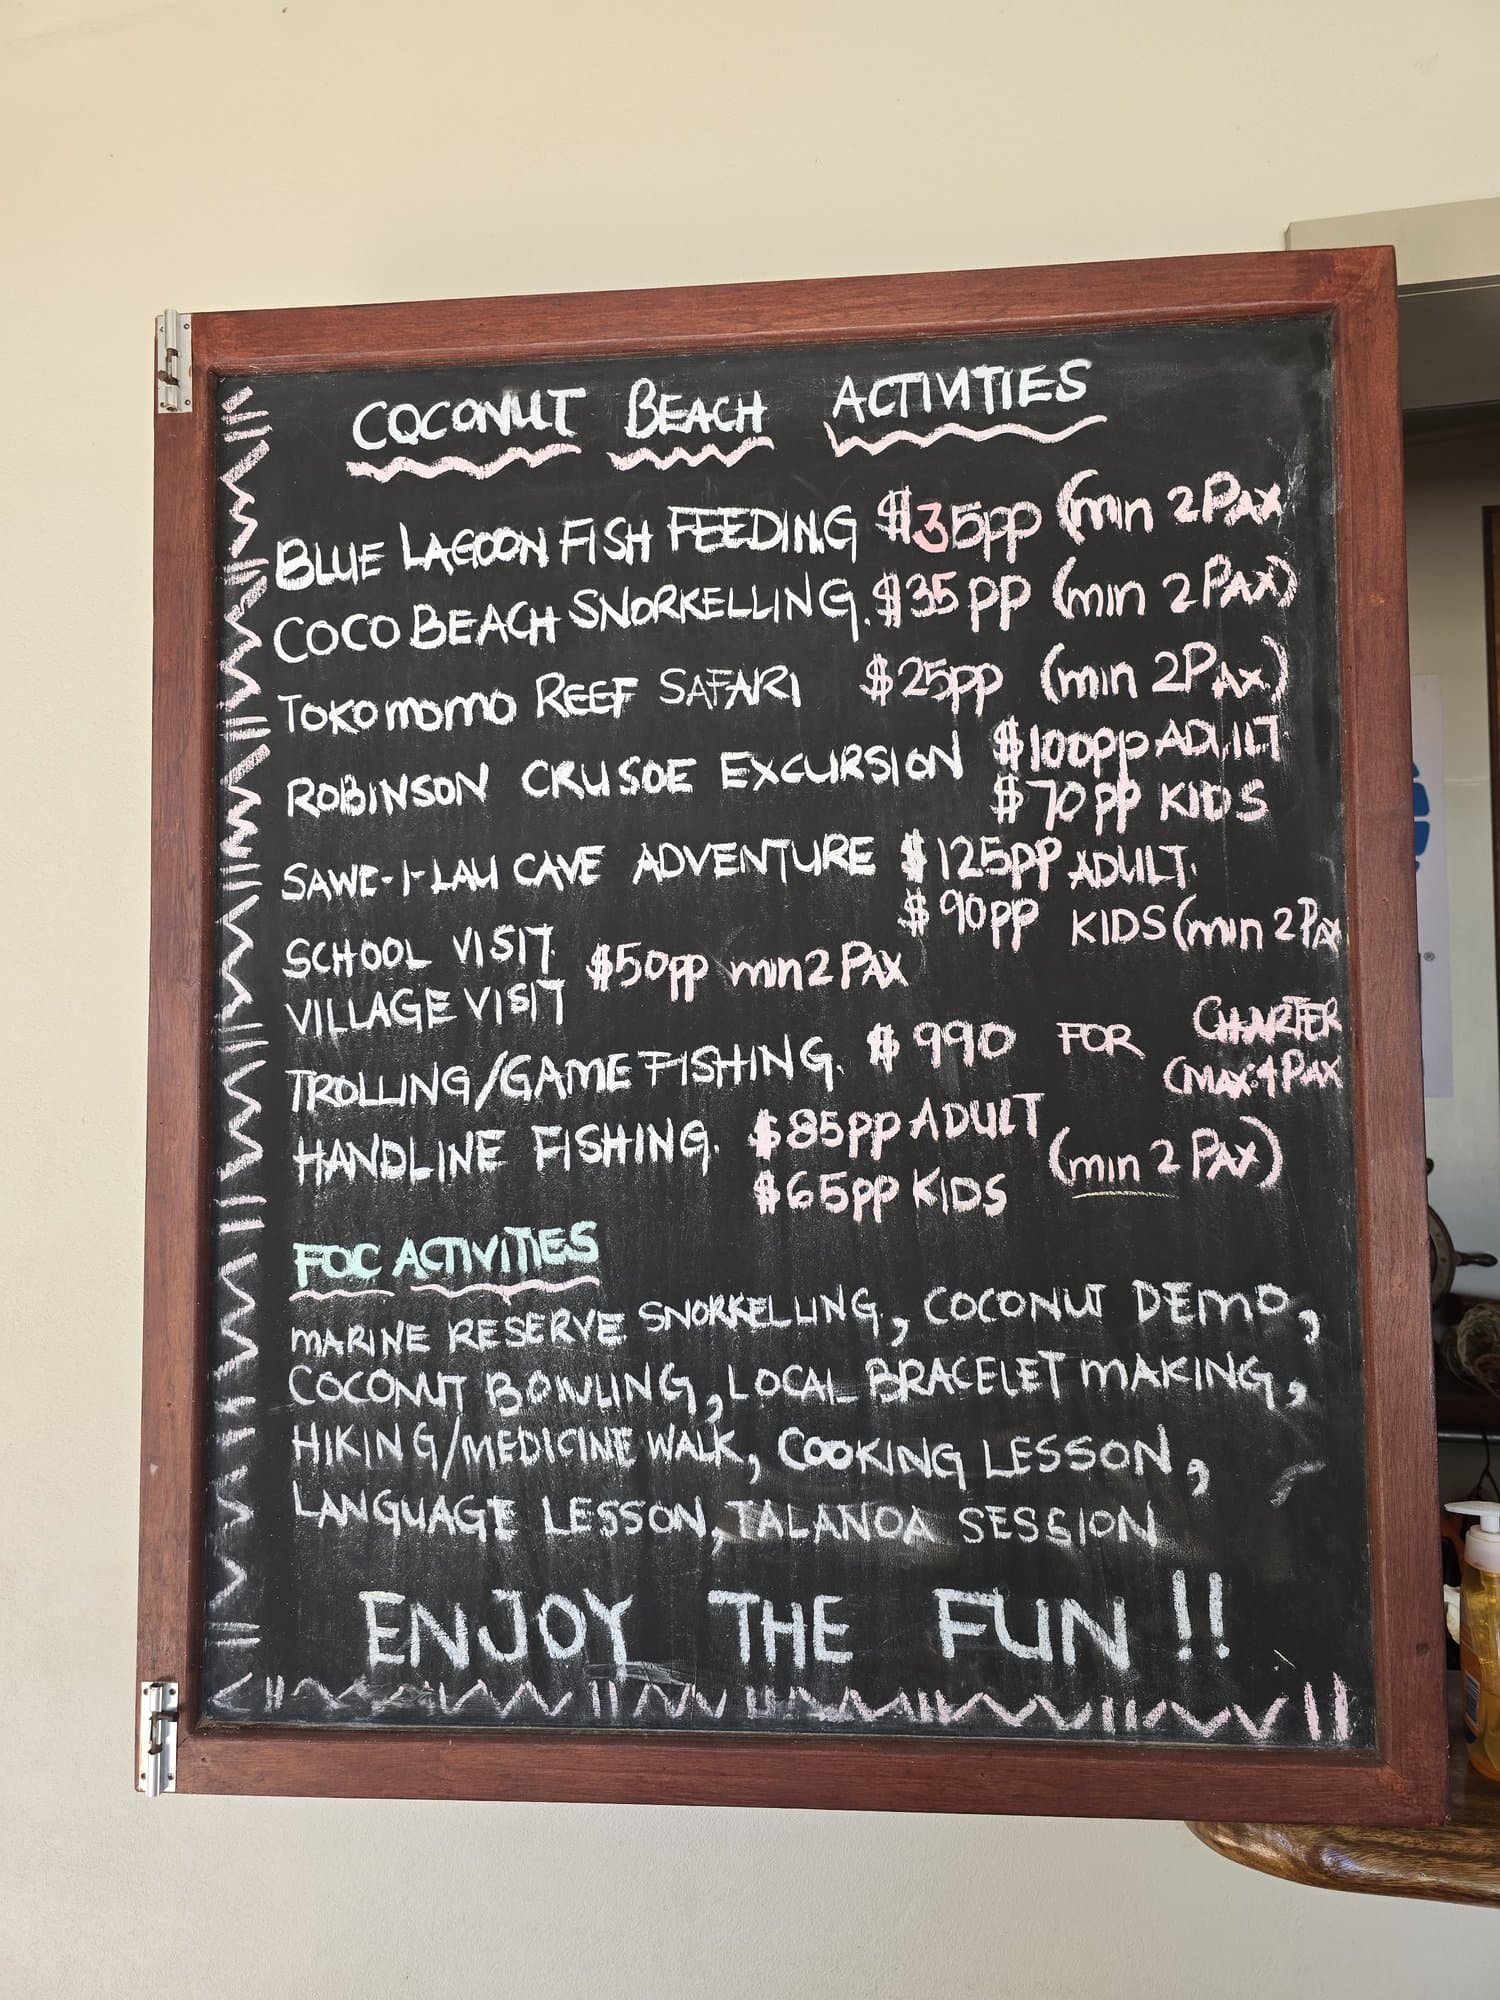 COCONUT BEACH ACTIVITIES
BLUE LAGOON FISH FEEDING $35pp (min 2 PAX
COCO BEACH SNORKELLING. $35 PP (min 2 PAX)
TOKOMOMO REEF SAFARI $25pp (min 2 PAX)
ROBINSON CRUSOE EXCURSION $100pp ADULT
$70 pp KIDS
SAWE-I-LAU CAVE ADVENTURE $125pp ADULT.
$90pp KIDS (min 2 PAX
SCHOOL VISIT. $50pp min 2 PAX
VILLAGE VISIT
TROLLING/GAME FISHING. $990 FOR CHARTER
(MAX:4 PAX
HANDLINE FISHING. $85pp ADULT (min 2 PAX)
$65pp KIDS
FOC ACTIVITIES
MARINE RESERVE SNORKELLING, COCONUT DEMO,
COCONUT BOWLING, LOCAL BRACELET MAKING,
HIKING/MEDICINE WALK, COOKING LESSON,
LANGUAGE LESSON, TALANOA SESSION
ENJOY THE FUN !!